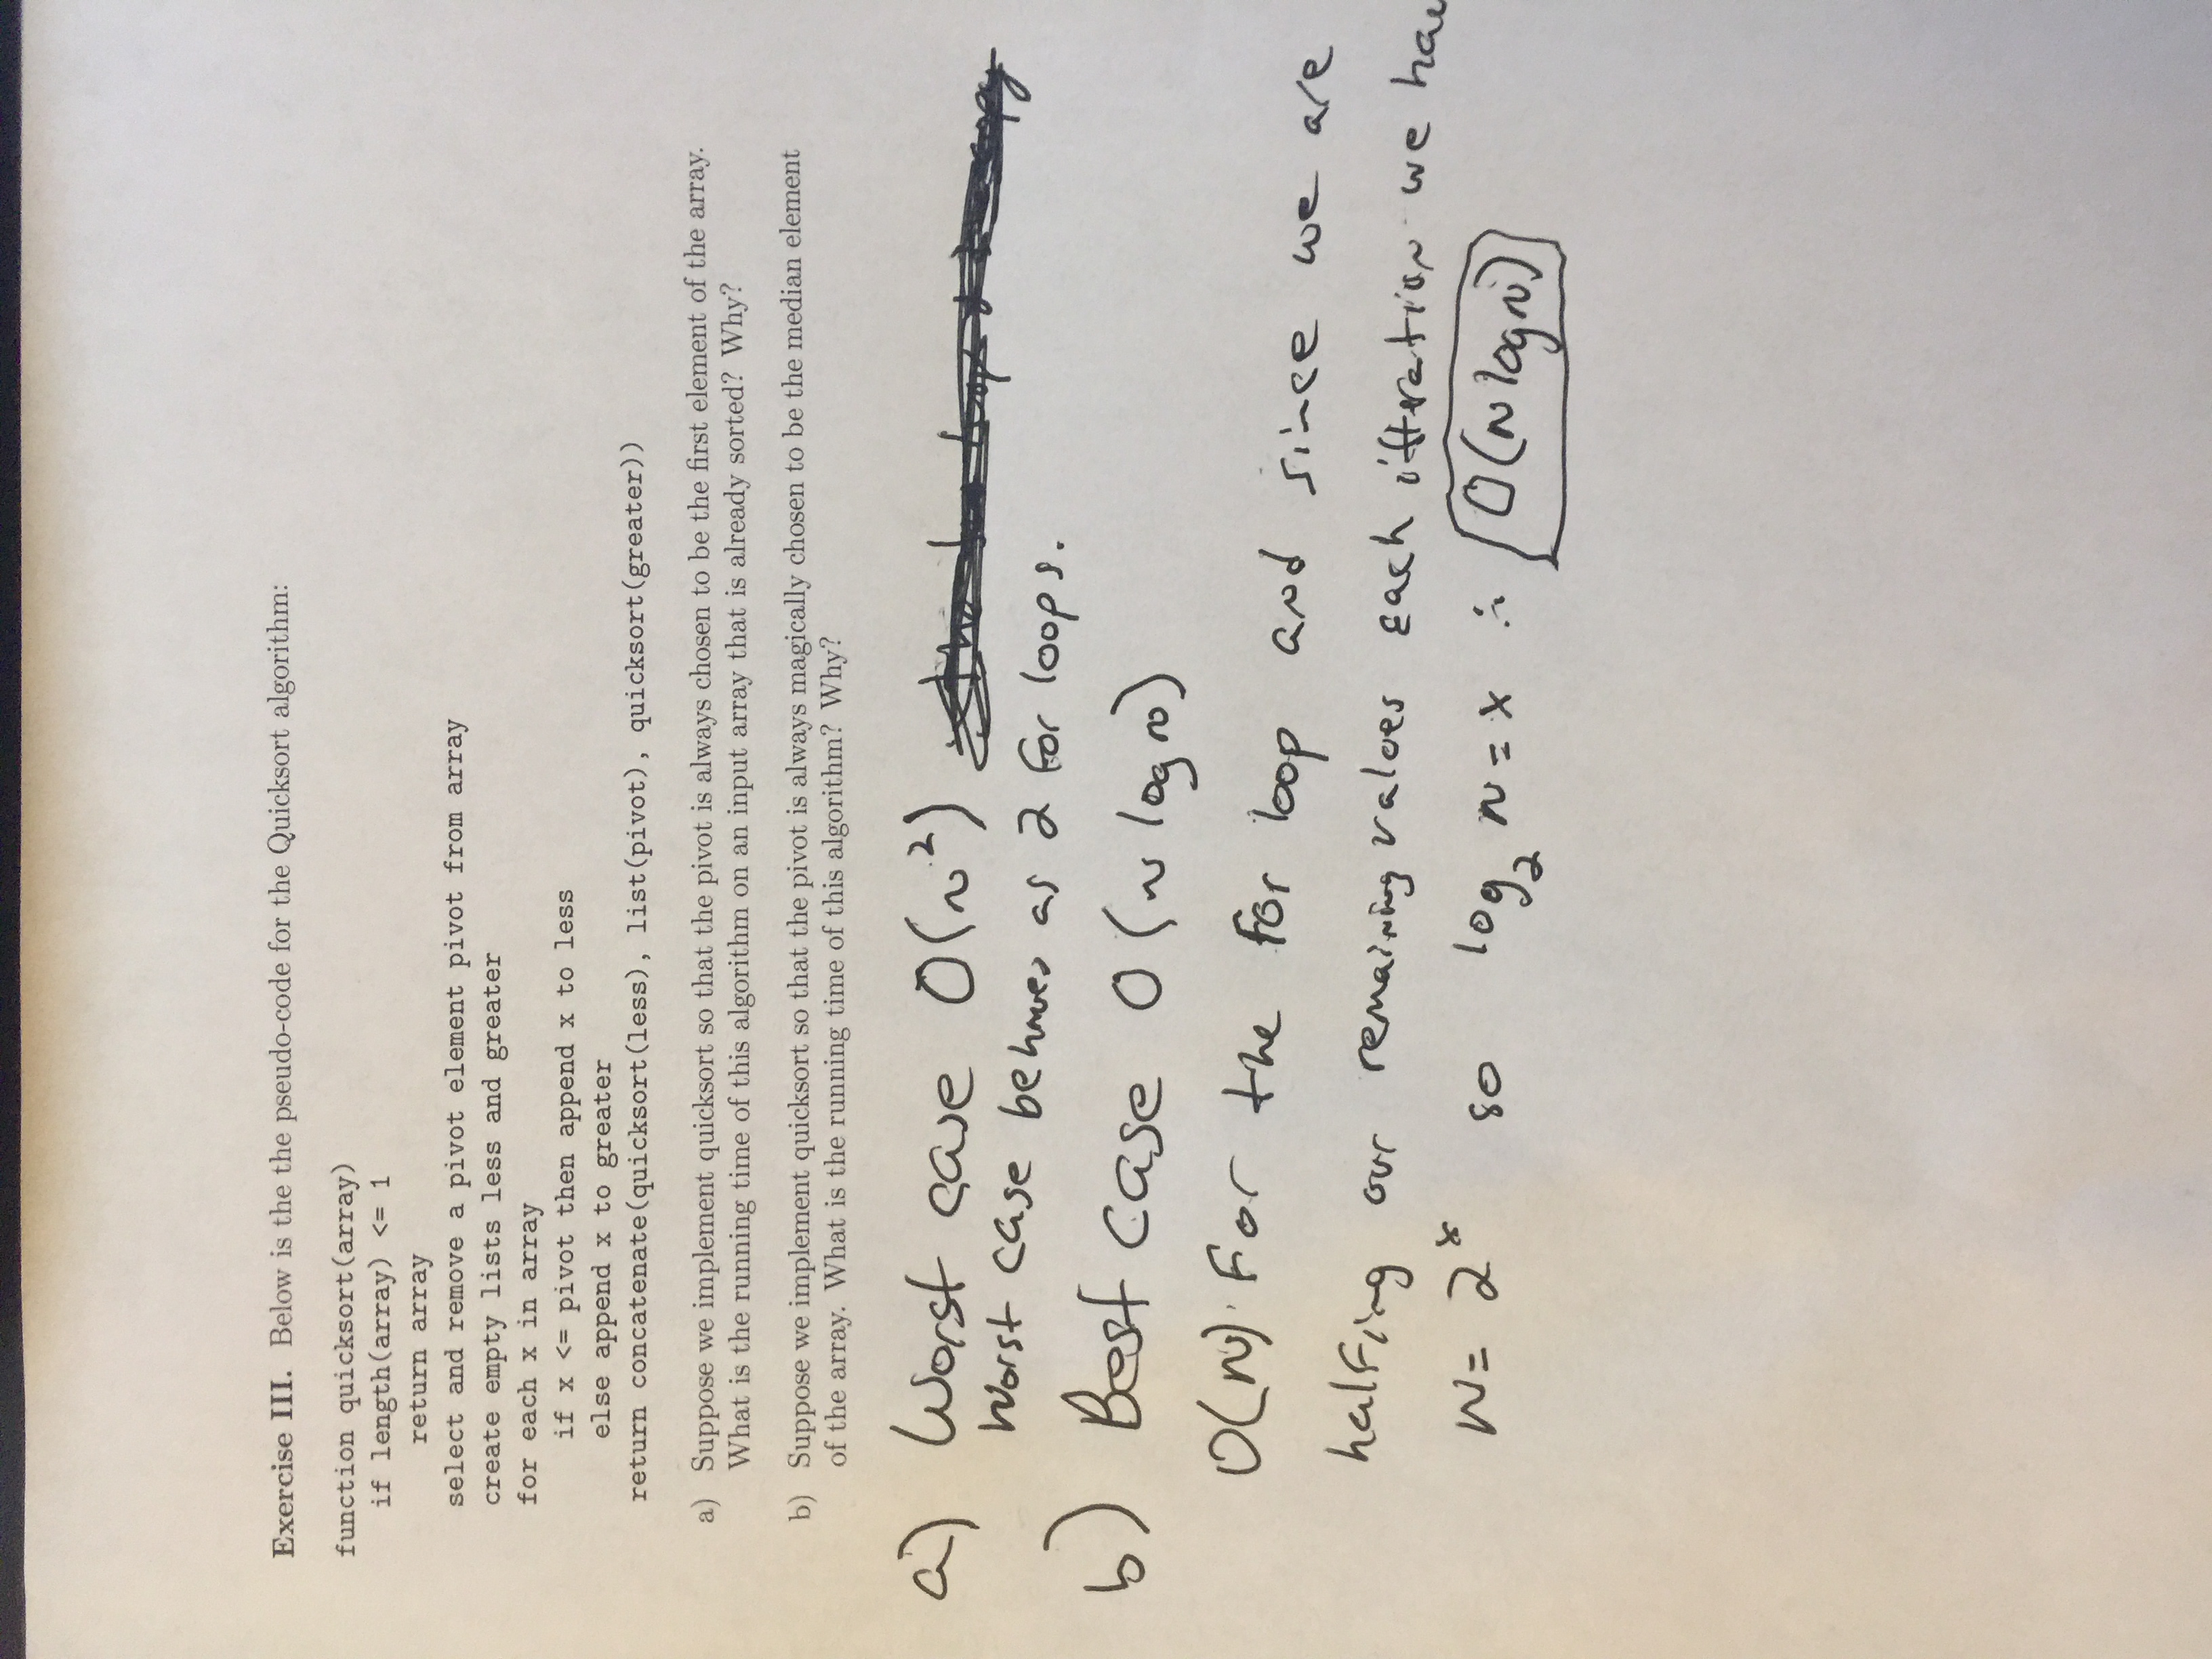 Exercise III. Below is the the pseudo-code for the Quicksort algorithm:
function quicksort(array)
if length(array) <= 1
return array
select and remove a pivot element pivot from array
create empty lists less and greater
for each x in array
if x <= pivot then append x to less
else append x to greater
return concatenate(quicksort(less), list(pivot), quicksort(greater))
a) Suppose we implement quicksort so that the pivot is always chosen to be the first element of the array.
What is the running time of this algorithm on an input array that is already sorted? Why?
b) Suppose we implement quicksort so that the pivot is always magically chosen to be the median element
of the array. What is the running time of this algorithm? Why?
a) Worst case O(n²)
Worst case behaves as 2 for loops.
b) Best case O(n log n)
O(N) For the for loop and since we are
halfing our remaining values each itteration we hav
N = 2ˣ so log₂ N = x ∴ O(N log N)